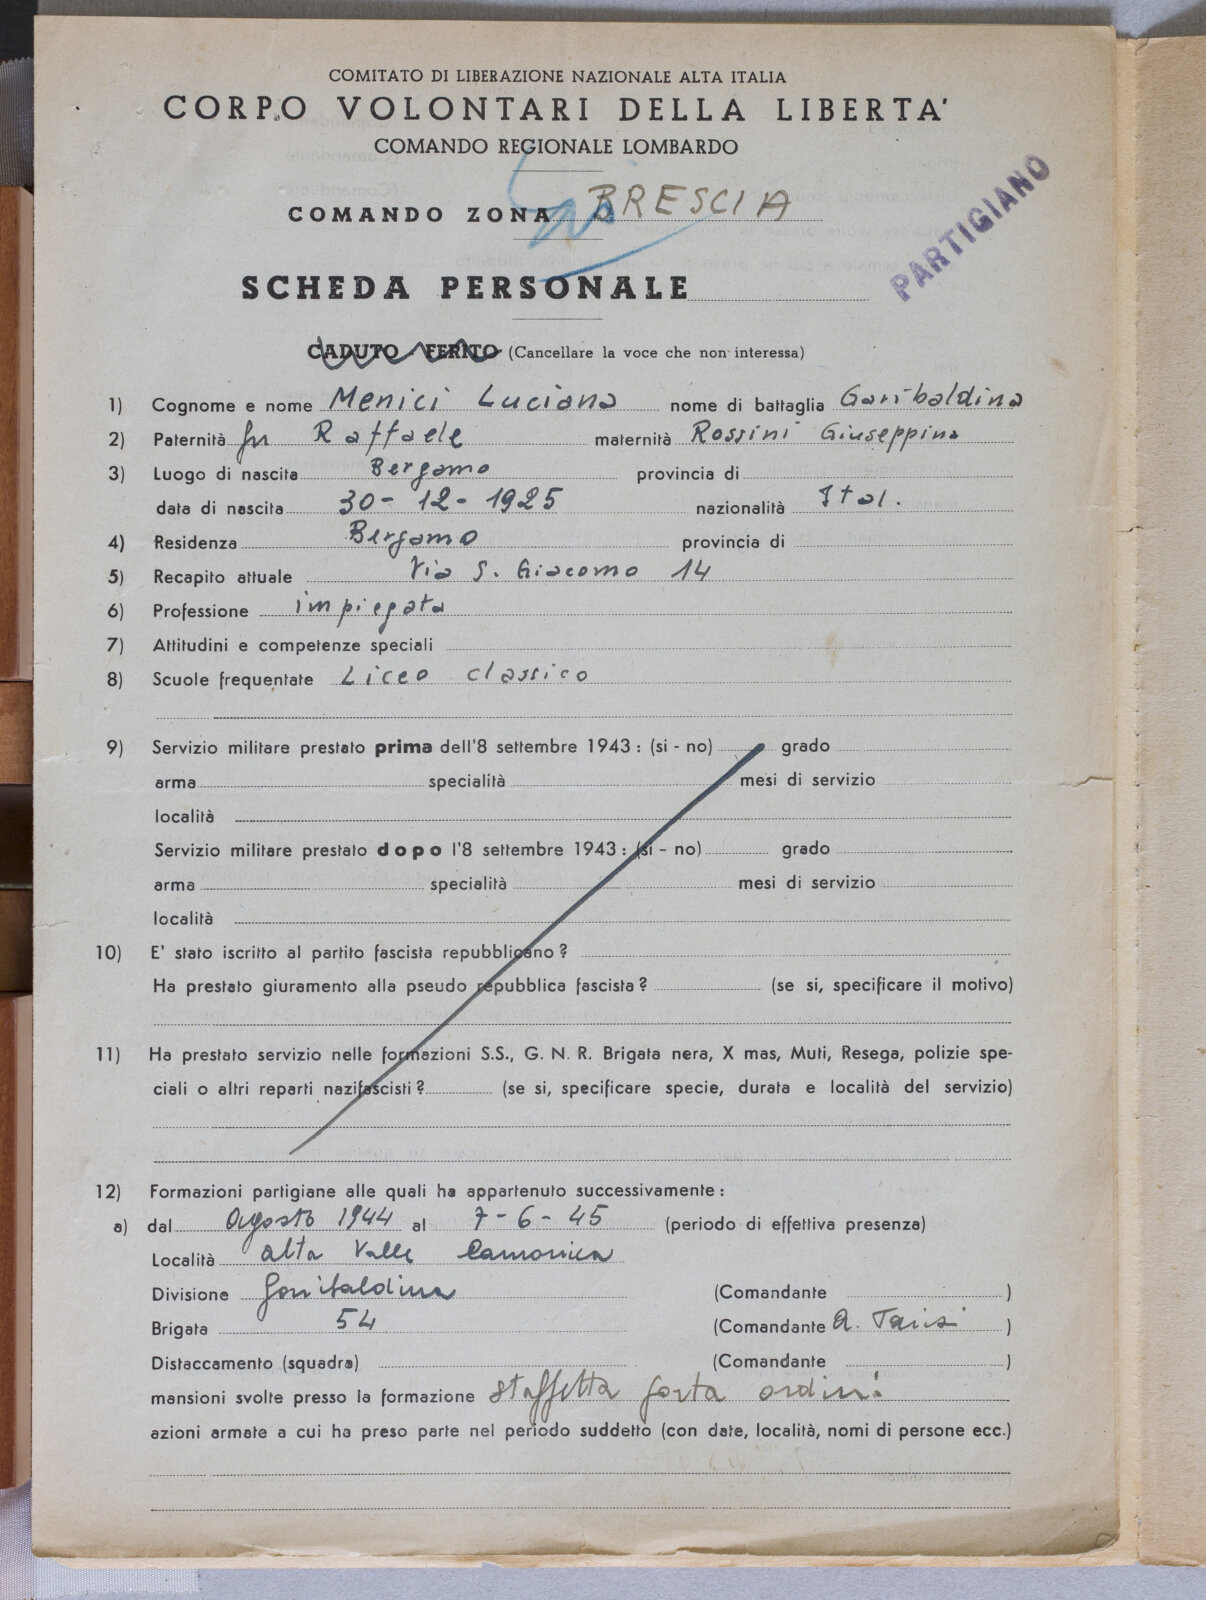 COMITATO DI LIBERAZIONE NAZIONALE ALTA ITALIA
CORPO VOLONTARI DELLA LIBERTA'
COMANDO REGIONALE LOMBARDO
COMANDO ZONA BRESCIA
PARTIGIANO
SCHEDA PERSONALE
CADUTO - FERITO (Cancellare la voce che non interessa)
1) Cognome e nome Menici Luciana nome di battaglia Garibaldina
2) Paternità fu Raffaele maternità Rossini Giuseppina
3) Luogo di nascita Bergamo provincia di
data di nascita 30-12-1925 nazionalità Ital.
4) Residenza Bergamo provincia di
5) Recapito attuale Via S. Giacomo 14
6) Professione impiegata
7) Attitudini e competenze speciali
8) Scuole frequentate Liceo classico
9) Servizio militare prestato prima dell'8 settembre 1943: (si - no) grado
arma specialità mesi di servizio
località
Servizio militare prestato dopo l'8 settembre 1943: (si - no) grado
arma specialità mesi di servizio
località
10) E' stato iscritto al partito fascista repubblicano?
Ha prestato giuramento alla pseudo repubblica fascista? (se si, specificare il motivo)
11) Ha prestato servizio nelle formazioni S.S., G. N. R. Brigata nera, X mas, Muti, Resega, polizie spe-
ciali o altri reparti nazifascisti? (se si, specificare specie, durata e località del servizio)
12) Formazioni partigiane alle quali ha appartenuto successivamente:
a) dal Agosto 1944 al 7-6-45 (periodo di effettiva presenza)
Località alta Valle Camonica
Divisione Garibaldina (Comandante )
Brigata 54 (Comandante A. Parisi )
Distaccamento (squadra) (Comandante )
mansioni svolte presso la formazione staffetta porta ordini
azioni armate a cui ha preso parte nel periodo suddetto (con date, località, nomi di persone ecc.)